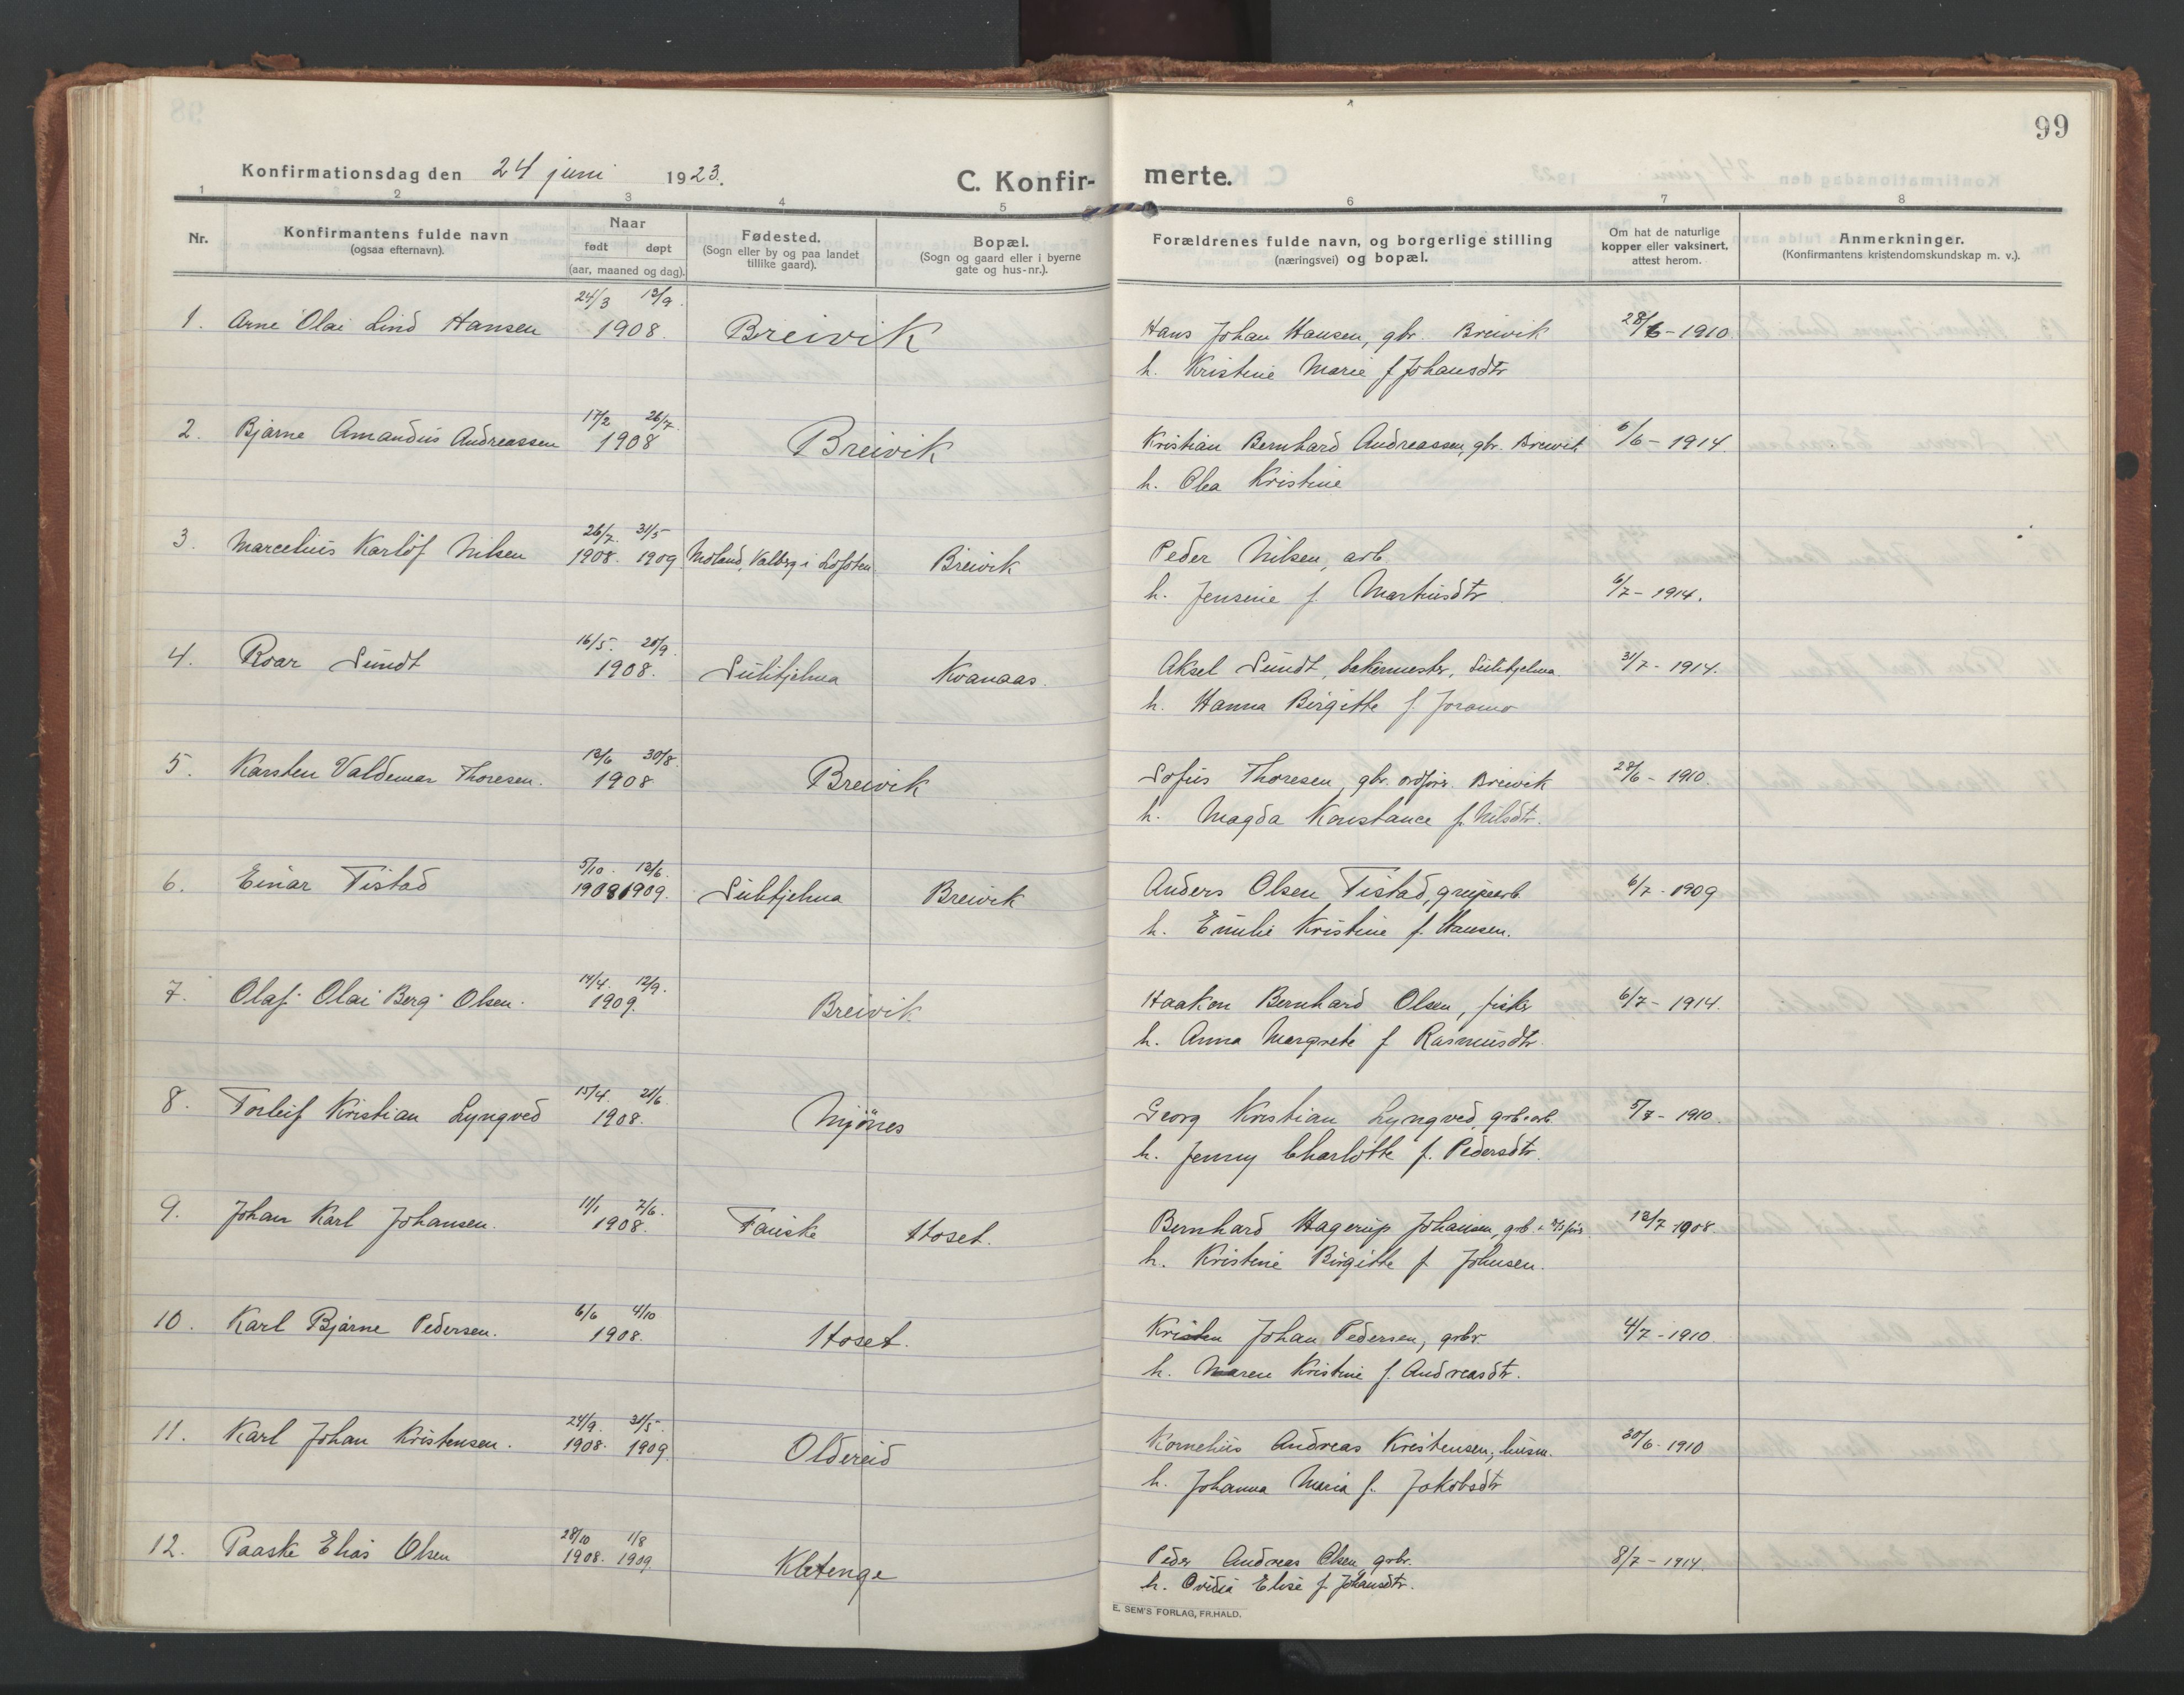 99
Konfirmationsdag den 24 juni 1923.
C. Konfirmerte.
1 2 3 4 5 6 7 8
Nr.
Konfirmantens fulde navn
(ogsaa efternavn).
Naar
født døpt
(aar, maaned og dag).
Fødested.
(Sogn eller by og paa landet
tillike gaard).
Bopæl.
(Sogn og gaard eller i byerne
gate og hus-nr.).
Forældrenes fulde navn, og borgerlige stilling
(næringsvei) og bopæl.
Om hat de naturlige
kopper eller vaksinert,
attest herom.
Anmerkninger.
(Konfirmantens kristendomskundskap m. v.).
24/3 13/9.
1. Arne Olai Lind Hansen 1908. Breivik Hans Johan Hansen, gbr. Breivik 28/6 - 1910
h. Kristine Marie f Johansdtr
17/2 26/7.
2. Bjarne Amandus Andreassen 1908 Breivik Kristian Bernhard Andreassen, gbr. Breivik 6/6 - 1914.
h. Olea Kristine
26/7. 31/5
3. Marcelius Karlof Nilsen 1908. 1909 Moland, Valberg i Lofoten Breivik Peder Nilsen, arb.
h. Jensine f. Martinsdtr 6/7 - 1914.
16/5. 20/9.
4. Roar Sundt 1908. Sulitjelma Kvanaas. Aksel Sundt, bakermester, Sulitjelma. 31/7 - 1914.
h. Hanna Birgitte f. Joramo
13/6 30/8.
5. Karsten Valdemar Thoresen. 1908 Breivik Sofus Thoresen, gbr. ordfører. Breivik 28/6 - 1910.
h. Magda Konstance f. Nilsdtr.
5/10. 13/6.
6. Einar Tistad 1908 1909. Sulitjelma Breivik Anders Olsen Tistad, grubearb. 6/7 - 1909
h. Emilie Kristine f. Hansen.
14/4. 12/9.
7. Olaf Olai Berg Olsen. 1909. Breivik. Haakon Bernhard Olsen, fisker 6/7 - 1914.
h. Anna Margrete f Rasmusdtr.
15/4. 21/6.
8. Torleif Kristian Lyngved 1908. Mjönes Georg Kristian Lyngved, grb. arb. 5/7 - 1910.
h. Jenny Charlotte f. Pedersdtr.
11/1 7/6.
9. Johan Karl Johansen. 1908. Fauske Hoset. Bernhard Hagerup Johansen, grb. 13/7 - 1908.
h. Kristine Birgitte f Johnsen.
6/6 4/10
10. Karl Bjarne Pedersen. 1908. Hoset. Kristen Johan Pedersen, grbr. 4/7 - 1910
h. Maren Kristine f. Andreasdtr.
24/9. 31/5.
11. Karl Johan Kristensen. 1908. 1909. Oldereid Kornelius Andreas Kristensen, husm. 30/6 - 1910
h. Johanna Maria f. Jakobsdtr
28/10 1/8
12. Paaske Elias Olsen 1908. 1909. Kletenge Peder Andreas Olsen, grbr. 8/7 - 1914.
h. Ovidia Elise f. Johansdtr.
E. SEM'S FORLAG, FR.HALD.